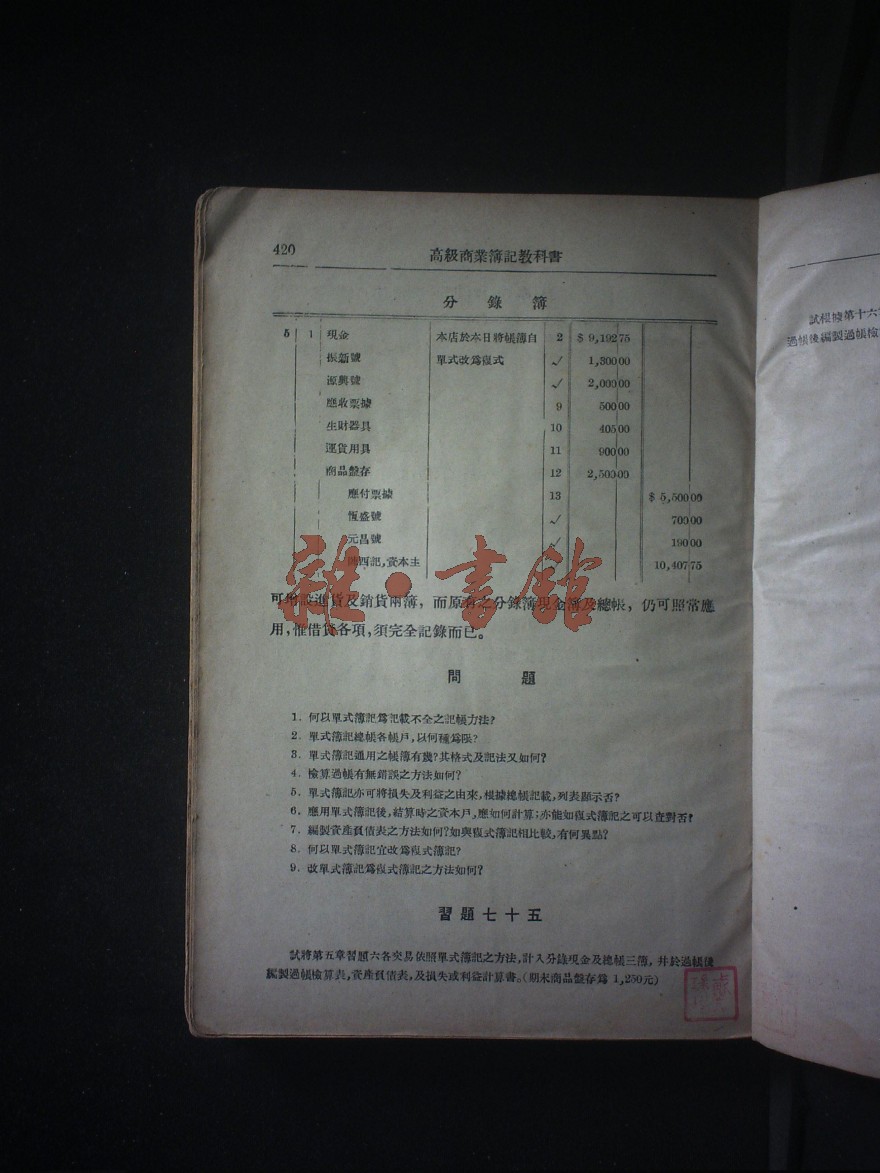 420
高級商業簿記教科書
分錄簿
5 1 現金 本店於本日將帳簿自 2 $ 9,192 75
振新號 單式改爲複式 ✓ 1,300 00
源興號 ✓ 2,000 00
應收票據 9 500 00
生財器具 10 405 00
運貨用具 11 900 00
商品盤存 12 2,500 00
應付票據 13 $ 5,500 00
恆盛號 ✓ 700 00
元昌號 ✓ 190 00
四記,資本主 10,407 75
雜·書館
可增設進貨及銷貨兩簿，而原有之分錄簿現金簿及總帳，仍可照常應
用,惟借貸各項,須完全記錄而已。
問題
1. 何以單式簿記爲記載不全之記帳方法?
2. 單式簿記總帳各帳戶,以何種爲限?
3. 單式簿記通用之帳簿有幾?其格式及記法又如何?
4. 檢算過帳有無錯誤之方法如何?
5. 單式簿記亦可將損失及利益之由來,根據總帳記載,列表顯示否?
6. 應用單式簿記後,結算時之資本戶,應如何計算;亦能如複式簿記之可以查對否?
7. 編製資產負債表之方法如何?如與複式簿記相比較,有何異點?
8. 何以單式簿記宜改爲複式簿記?
9. 改單式簿記爲複式簿記之方法如何?
習題七十五
試將第五章習題六各交易依照單式簿記之方法,計入分錄現金及總帳三簿,幷於過帳後
編製過帳檢算表,資產負債表,及損失或利益計算書。(期末商品盤存爲 1,250元)
試根據第十六
過帳後編製過帳檢